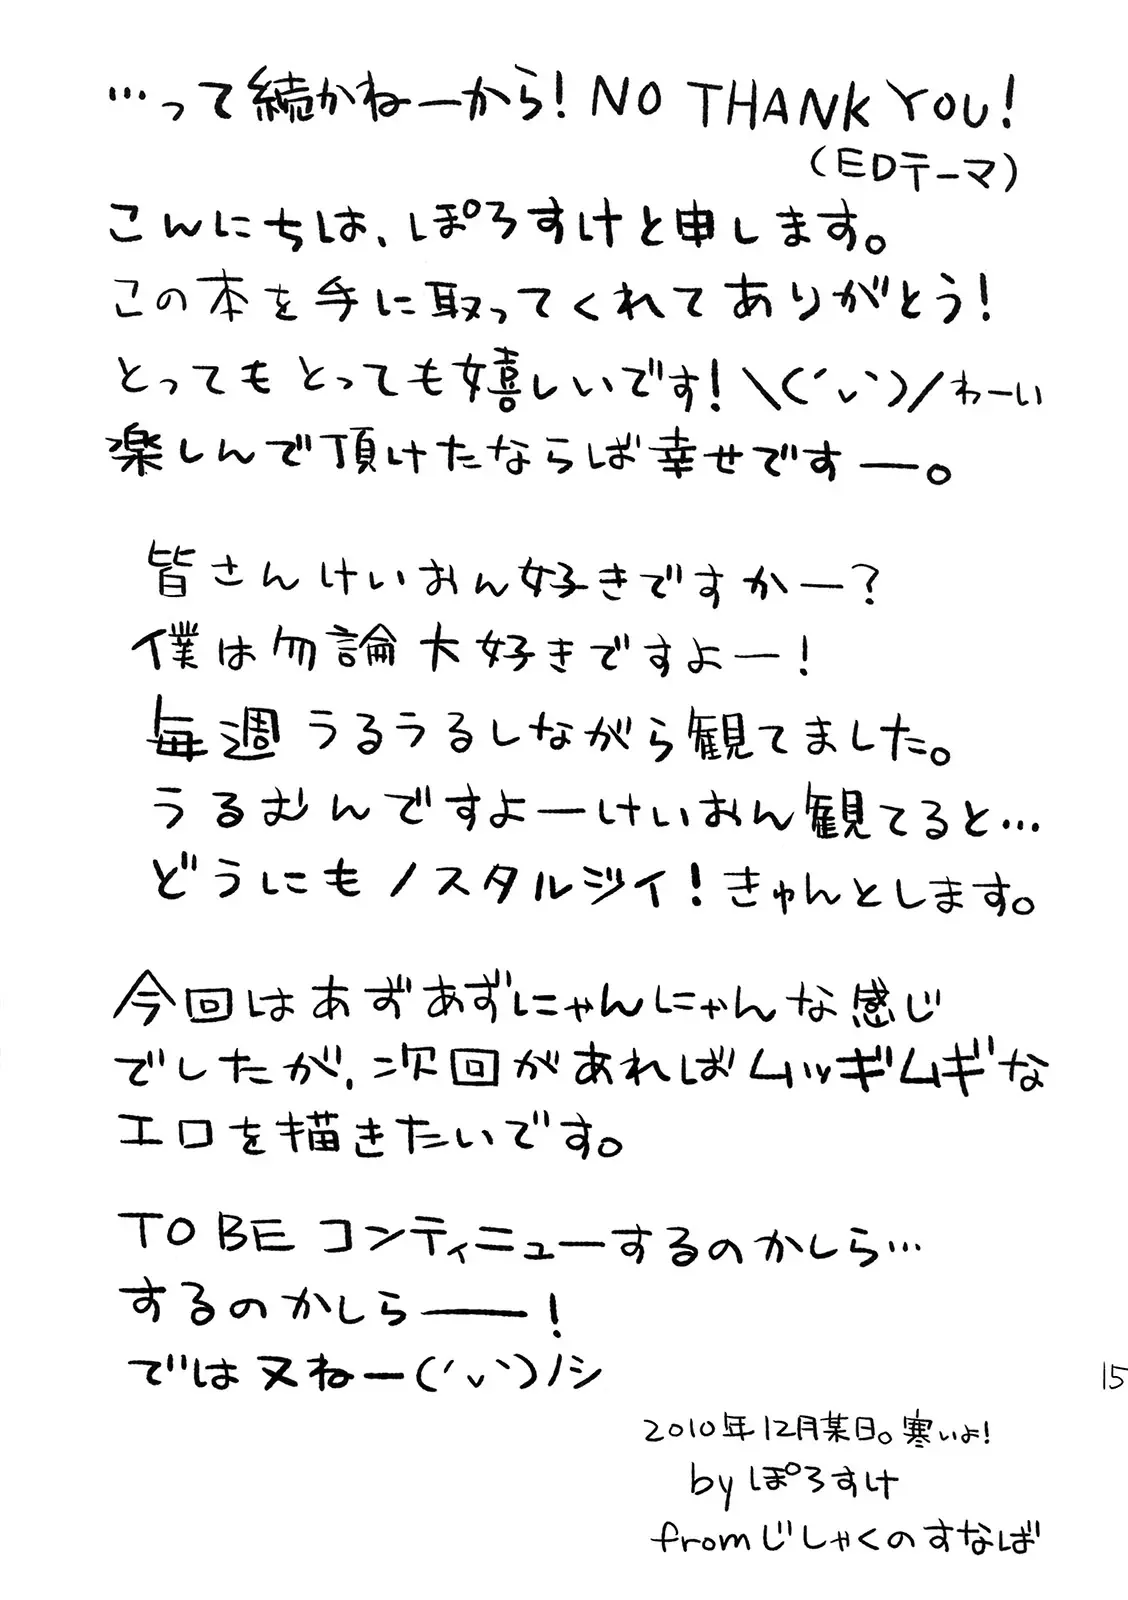 …って続かねーから！NO THANK YOU！
（EDテーマ）
こんにちは、ぽろすけと申します。
この本を手に取ってくれてありがとう！
とってもとっても嬉しいです！＼(´ヮ`)／わーい
楽しんで頂けたならば幸せですー。
皆さんけいおん好きですかー？
僕は勿論大好きですよー！
毎週うるうるしながら観てました。
うるむんですよーけいおん観てると…
どうにもノスタルジイ！きゅんとします。
今回はあずあずにゃんにゃんな感じ
でしたが、次回があればムッギムギな
エロを描きたいです。
TO BE コンティニューするのかしら…
するのかしらーー！
では又ねー(´ヮ`)ノシ
15
2010年12月某日。寒いよ！
by ぽろすけ
from じしゃくのすなば